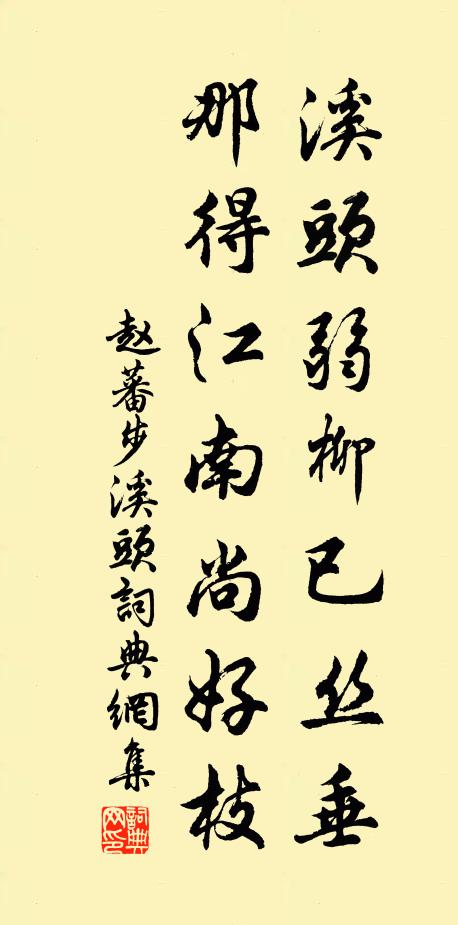 溪頭弱柳已丝垂
那得江南尚好枝
赵蕃步溪頭詞典網集
詞典网印